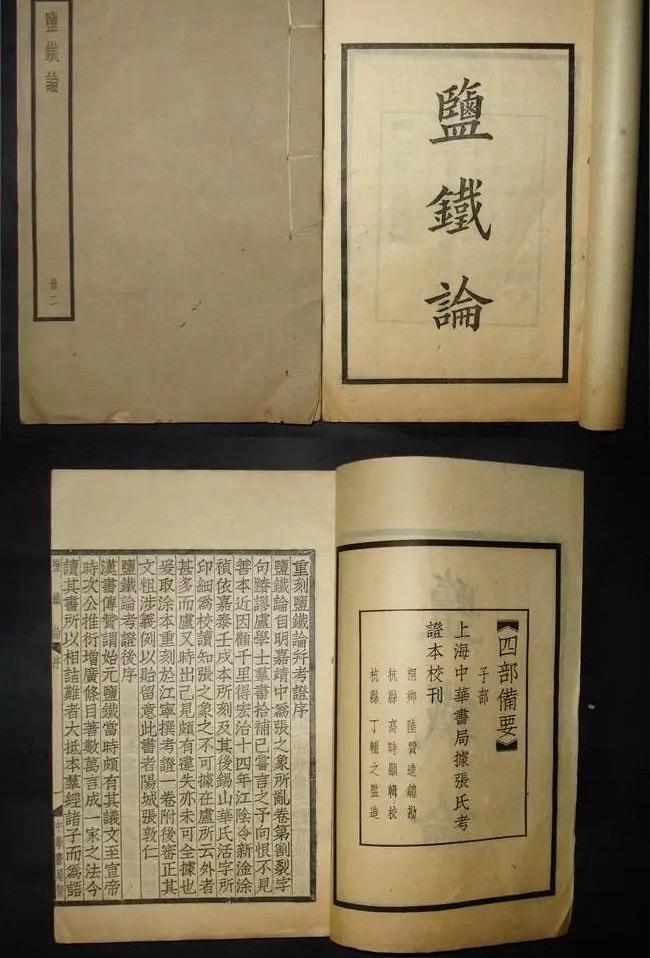 鹽鐵論
冊二
鹽鐵論
《四部備要》
子部
上海中華書局據張氏考
證本校刊
桐鄉 陸費逵總勘
杭縣 高時顯輯校
杭縣 丁輔之監造
重刻鹽鐵論幷考證序
鹽鐵論自明嘉靖中爲張之象所亂卷第割裂字
句譌謬盧學士羣書拾補已嘗言之予向恨不見
善本近因顧千里得宏治十四年江陰令新淦涂
禎依嘉泰壬戌本所刻及其後錫山華氏活字所
印細爲校讀知張之象之不可據在盧所云外者
甚多而盧又時出己見頗有違失亦未可全據也
爰取涂本重刻於江寧撰考證一卷附後審正其
文粗涉義例以貽留意此書者陽城張敦仁
鹽鐵論考證後序
漢書傳贊謂始元鹽鐵當時頗有其議文至宣帝
時次公推衍增廣條目著數萬言成一家之法今
讀其書所以相詰難者大抵本羣經諸子而爲語
鹽鐵論 序
一 中華書局聚